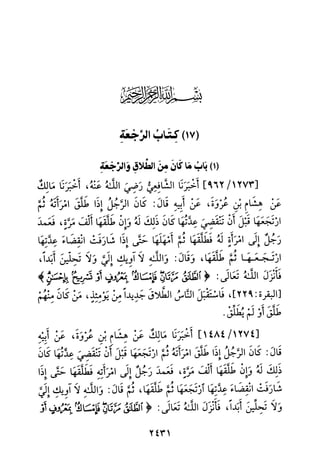 بسم الله الرحمن الرحيم
(١٧) كِتَابُ الرَّجْعَةِ
(١) بَابُ مَا كَانَ مِنَ الطَّلَاقِ وَالرَّجْعَةِ
[٩٦٢/١٢٧٣] أَخْبَرَنَا الشَّافِعِيُّ رَضِيَ اللَّـهُ عَنْهُ، أَخْبَرَنَا مَالِكٌ
عَنْ هِشَامِ بْنِ عُرْوَةَ، عَنْ أَبِيهِ قَالَ: كَانَ الرَّجُلُ إِذَا طَلَّقَ امْرَأَتَهُ ثُمَّ
ارْتَجَعَهَا قَبْلَ أَنْ تَنْقَضِيَ عِدَّتُهَا كَانَ ذَلِكَ لَهُ وَإِنْ طَلَّقَهَا أَلْفَ مَرَّةٍ، فَعَمَدَ
رَجُلٌ إِلَى امْرَأَةٍ لَهُ فَطَلَّقَهَا ثُمَّ أَمْهَلَهَا حَتَّى إِذَا شَارَفَتْ انْقِضَاءَ عِدَّتِهَا
ارْتَجَعَهَا ثُمَّ طَلَّقَهَا، وَقَالَ: وَاللَّـهِ لَا آوِيكِ إِلَيَّ وَلَا تَحِلِّينَ أَبَداً،
فَأَنْزَلَ اللَّـهُ تَعَالَى: ﴿ ٱلطَّلَٰقُ مَرَّتَانِۖ فَإِمْسَاكُۢ بِمَعْرُوفٍ أَوْ تَسْرِيحُۢ بِإِحْسَٰنٖ ﴾
[البقرة: ٢٢٩]، فَاسْتَقْبَلَ النَّاسُ الطَّلَاقَ جَدِيداً مِنْ يَوْمِئِذٍ، مَنْ كَانَ مِنْهُمْ
طَلَّقَ أَوْ لَمْ يُطَلِّقْ.
[١٤٨٤/١٢٧٤] أَخْبَرَنَا مَالِكٌ عَنْ هِشَامِ بْنِ عُرْوَةَ، عَنْ أَبِيْهِ
قَالَ: كَانَ الرَّجُلُ إِذَا طَلَّقَ امْرَأَتَهُ ثُمَّ ارْتَجَعَهَا قَبْلَ أَنْ تَنْقَضِيَ عِدَّتُهَا كَانَ
ذَلِكَ لَهُ وَإِنْ طَلَّقَهَا أَلْفَ مَرَّةٍ، فَعَمَدَ رَجُلٌ إِلَى امْرَأَتِهِ فَطَلَّقَهَا حَتَّى إِذَا
شَارَفَتْ انْقِضَاءَ عِدَّتِهَا ارْتَجَعَهَا ثُمَّ طَلَّقَهَا، ثُمَّ قَالَ: وَاللَّـهِ لَا آوِيكِ إِلَيَّ
وَلَا تَحِلِّينَ أَبَداً، فَأَنْزَلَ اللَّـهُ تَعَالَى: ﴿ ٱلطَّلَٰقُ مَرَّتَانِۖ فَإِمْسَاكُۢ بِمَعْرُوفٍ أَوْ
٢٤٣١